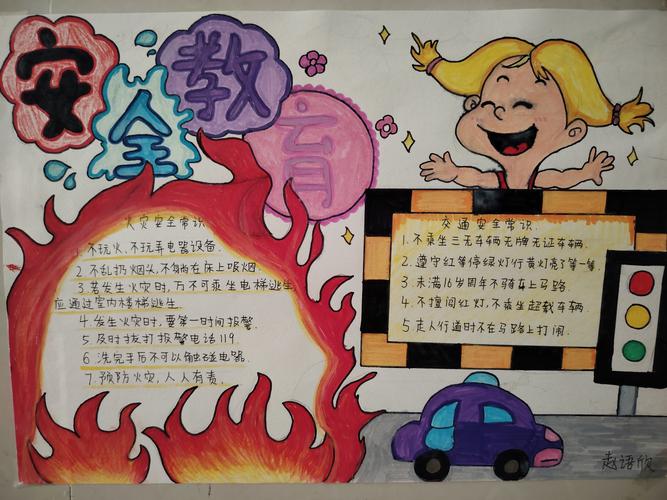 安全教育
火灾安全常识
1.不玩火、不玩弄电器设备.
2.不乱扔烟头,不躺在床上吸烟.
3.若发生火灾时,万不可乘坐电梯逃生
应通过室内楼梯逃生.
4.发生火灾时,要第一时间报警.
5.及时拨打报警电话119.
6.洗完手万不可以触碰电器.
7.预防火灾,人人有责.
交通安全常识.
1.不乘坐三无车辆无牌无证车辆.
2.遵守红等停绿灯行黄灯亮了等一等.
3.未满16岁周年不骑车上马路.
4.不擅闯红灯,不乘坐超载车辆.
5.走人行道时不在马路上打闹.
赵语欣